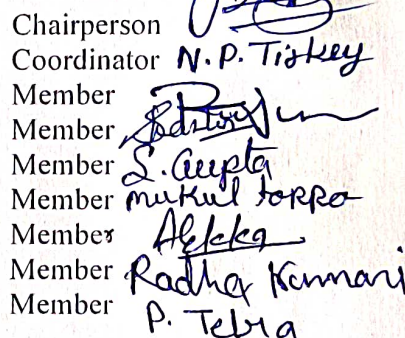 Chairperson
Coordinator N.P. Tiskey
Member
Member
Member S. Gupta
Member Mukul Toppo
Member AEkka
Member Radha Kumari
Member P. Tebra